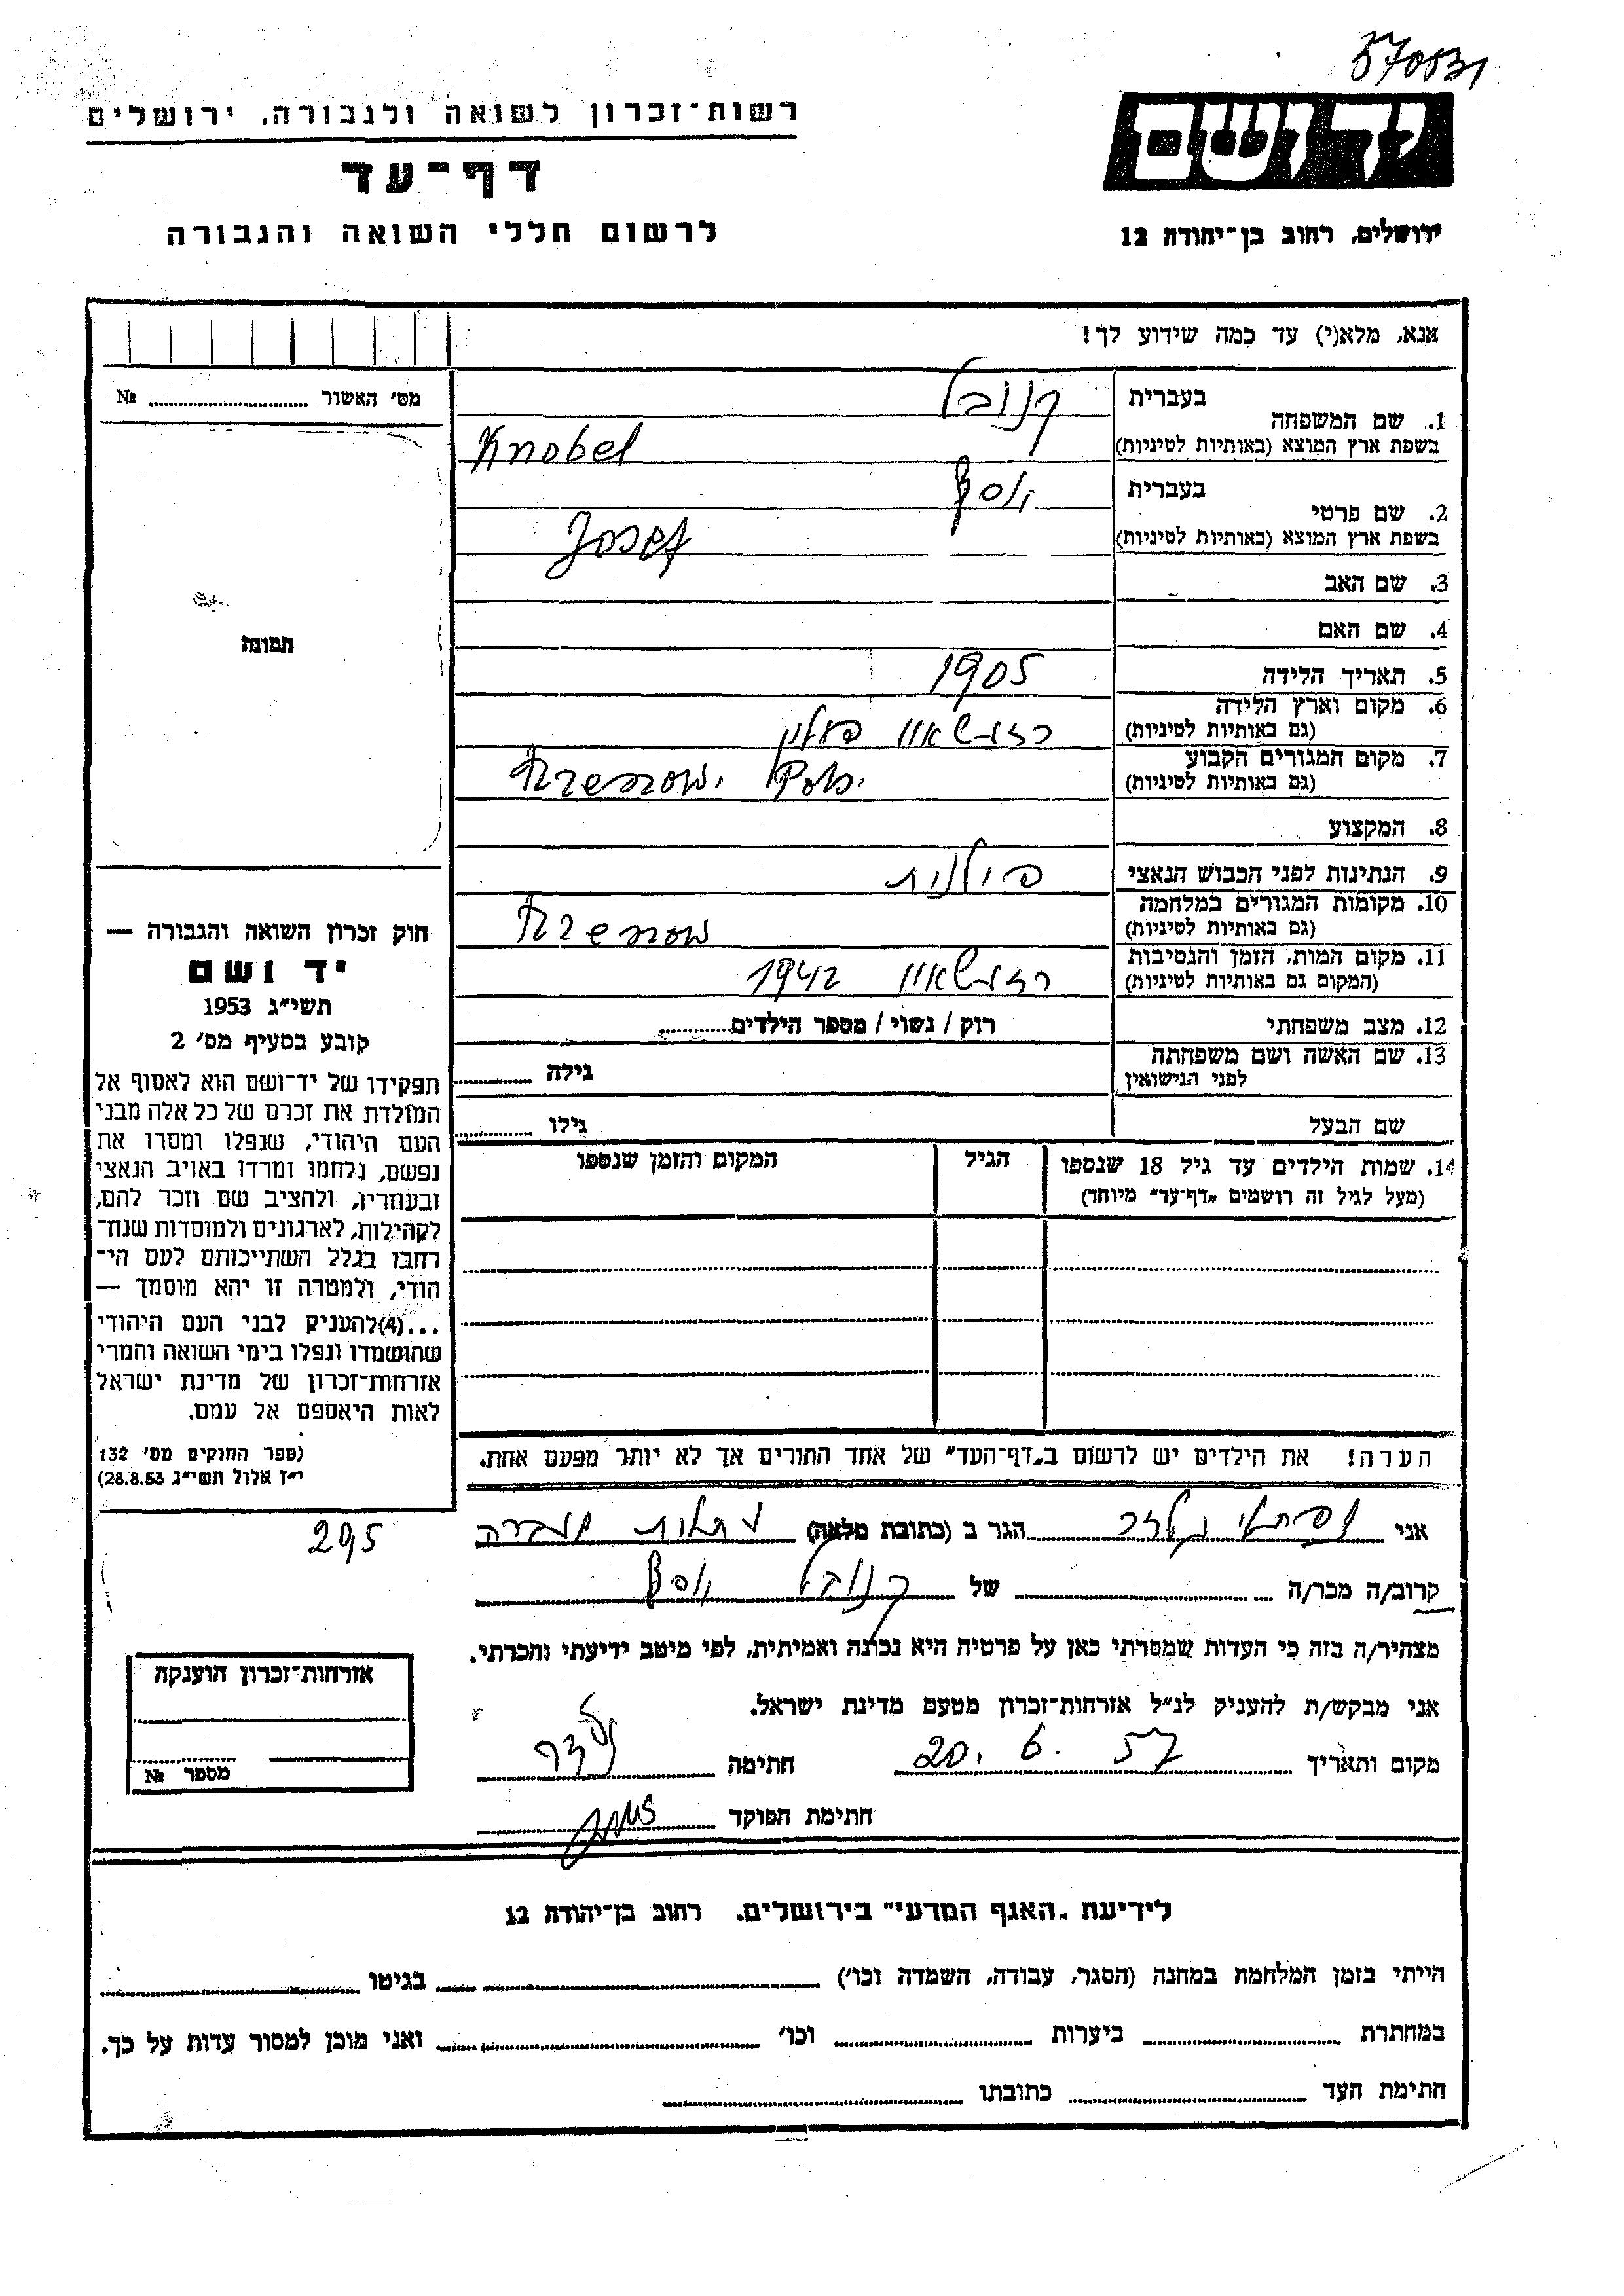 570831
רשות־זכרון לשואה ולגבורה, ירושלים
דף־עד
לרשום חללי השואה והגבורה
יד ושם
ירושלים, רחוב בן־יהודה 12
אנא, מלא(י) עד כמה שידוע לך!
מס׳ האשור № 
1. שם המשפחה בעברית קנובל
בשפת ארץ המוצא (באותיות לטיניות) Knobel
2. שם פרטי בעברית יוסף
בשפת ארץ המוצא (באותיות לטיניות) Josef
3. שם האב
4. שם האם
תמונה
5. תאריך הלידה 1905
6. מקום וארץ הלידה
(גם באותיות לטיניות)
7. מקום המגורים הקבוע
(גם באותיות לטיניות)
8. המקצוע
9. הנתינות לפני הכבוש הנאצי פולנית
10. מקומות המגורים במלחמה
(גם באותיות לטיניות)
11. מקום המות, הזמן והנסיבות 1942
(המקום גם באותיות לטיניות)
12. מצב משפחתי רווק / נשוי / מספר הילדים
13. שם האשה ושם משפחתה
לפני הנישואין גילה
שם הבעל גילו
14. שמות הילדים עד גיל 18 שנספו הגיל המקום והזמן שנספו
(מעל לגיל זה רושמים „דף־עד״ מיוחד)
חוק זכרון השואה והגבורה —
יד ושם
תשי״ג 1953
קובע בסעיף מס׳ 2
תפקידו של יד־ושם הוא לאסוף אל
המולדת את זכרם של כל אלה מבני
העם היהודי, שנפלו ומסרו את
נפשם, נלחמו ומרדו באויב הנאצי
ובעוזריו, ולהציב שם וזכר להם,
לקהילות, לארגונים ולמוסדות שנח־
רבו בגלל השתייכותם לעם הי־
הודי, ולמטרה זו יהא מוסמך —
...(4)להעניק לבני העם היהודי
שהושמדו ונפלו בימי השואה והמרי
אזרחות־זכרון של מדינת ישראל
לאות היאספם אל עמם.
(ספר החוקים מס׳ 132
י״ז אלול תשי״ג 28.8.53)
הערה! את הילדים יש לרשום ב„דף־העד״ של אחד ההורים אך לא יותר מפעם אחת.
אני הגר ב (כתובת מלאה)
295
קרוב/ה מכר/ה של קנובל יוסף
מצהיר/ה בזה כי העדות שמסרתי כאן על פרטיה היא נכונה ואמיתית, לפי מיטב ידיעתי והכרתי.
אני מבקש/ת להעניק לנ״ל אזרחות־זכרון מטעם מדינת ישראל.
מקום ותאריך 20. 6. 57 חתימה
חתימת הפוקד
אזרחות־זכרון הוענקה
מספר №
לידיעת „האגף המדעי״ בירושלים, רחוב בן־יהודה 12
הייתי בזמן המלחמה במחנה (הסגר, עבודה, השמדה וכו׳) בגיטו
במחתרת ביערות וכו׳ ואני מוכן למסור עדות על כך.
חתימת העד כתובתו